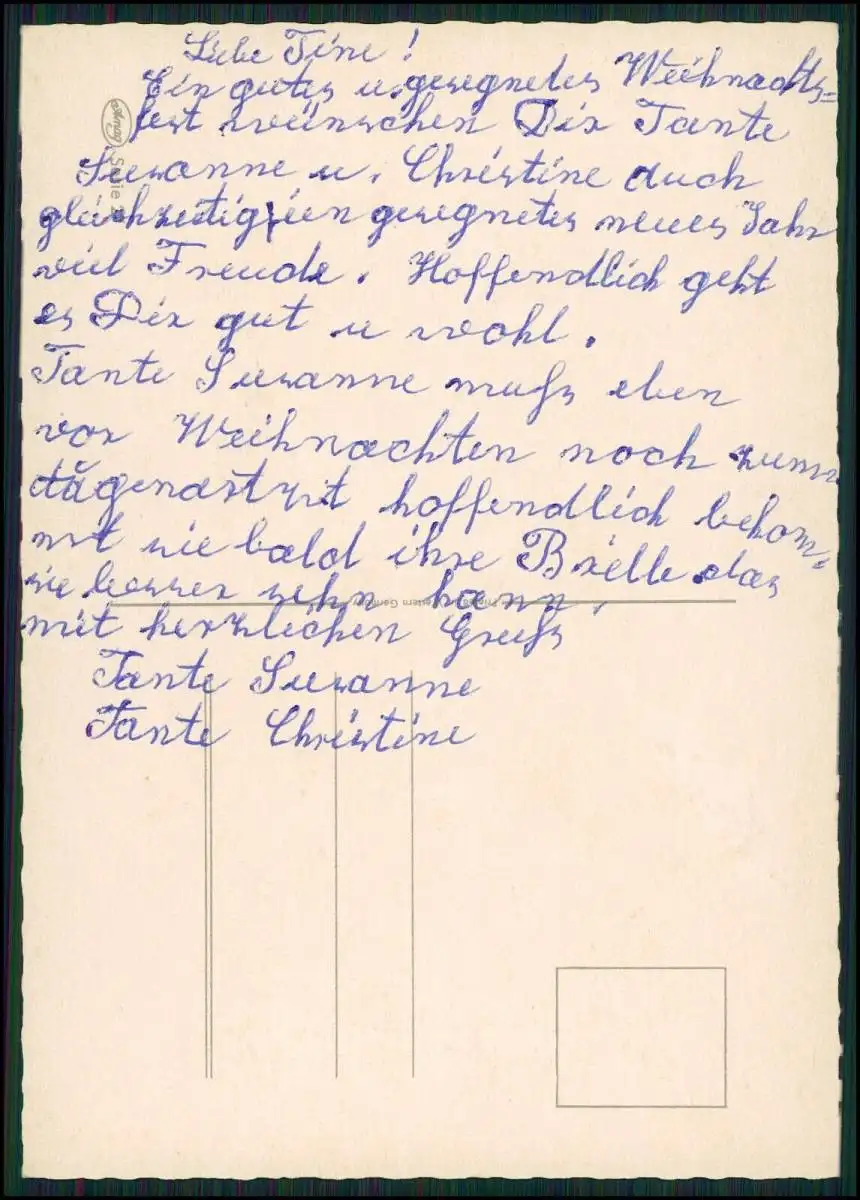 Liebe Tine !
Ein gutes u. gesegnetes Weihnachts=
fest wünschen Dir Tante
Susanne u. Christine auch
gleichzeitig ein gesegnetes neues Jahr
viel Freude. Hoffendlich geht
es Dir gut u wohl.
Tante Susanne muſs eben
vor Weihnachten noch zum
augenartzt hoffendlich bekom=
mt sie bald ihre Brille das
sie besser sehn kann.
mit herzlichen Gruſs
Tante Susanne
Tante Christine
Amag
Serie
Western Germany